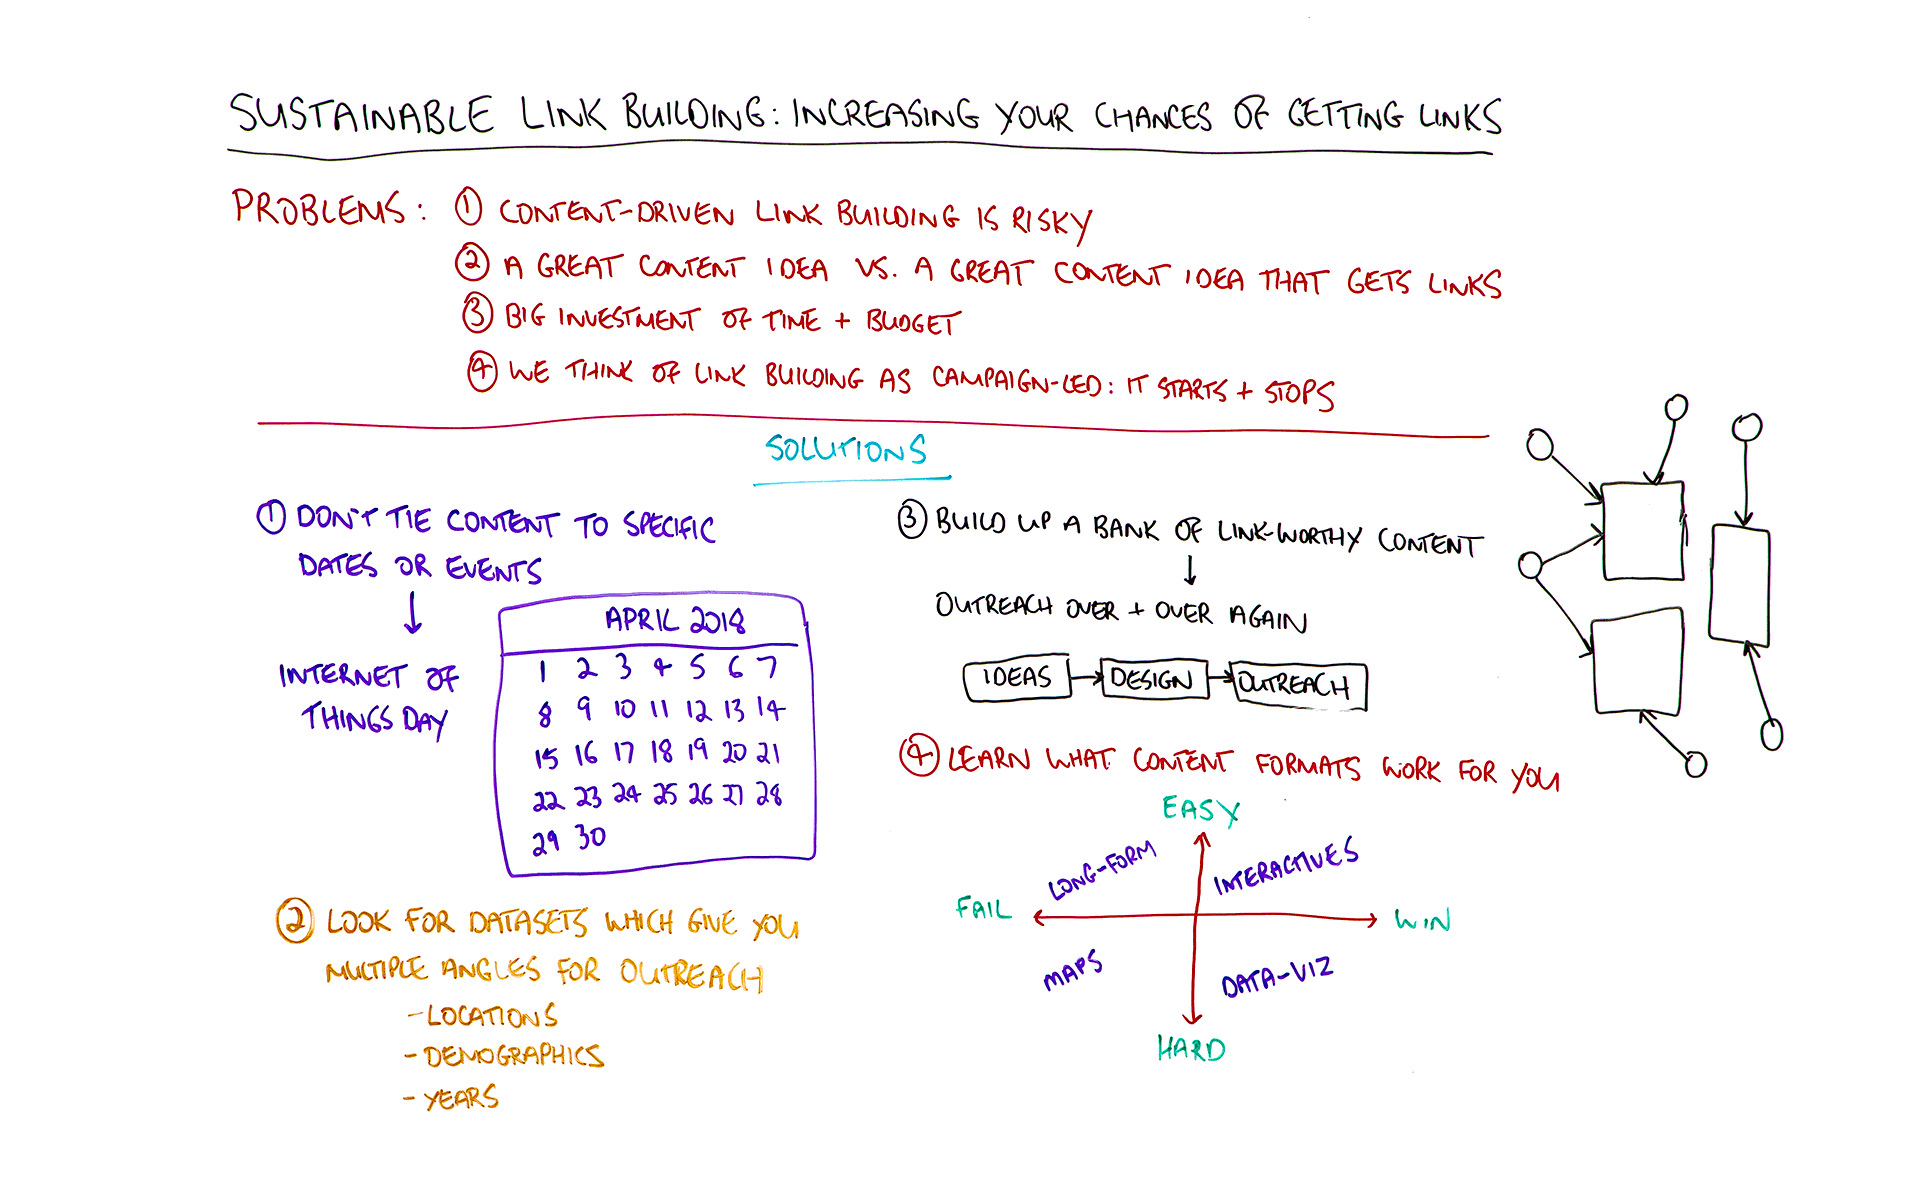 SUSTAINABLE LINK BUILDING: INCREASING YOUR CHANCES OF GETTING LINKS
PROBLEMS: ① CONTENT-DRIVEN LINK BUILDING IS RISKY
② A GREAT CONTENT IDEA VS. A GREAT CONTENT IDEA THAT GETS LINKS
③ BIG INVESTMENT OF TIME + BUDGET
④ WE THINK OF LINK BUILDING AS CAMPAIGN-LED: IT STARTS + STOPS
SOLUTIONS
① DON'T TIE CONTENT TO SPECIFIC
DATES OR EVENTS
INTERNET OF
THINGS DAY
APRIL 2018
1 2 3 4 5 6 7
8 9 10 11 12 13 14
15 16 17 18 19 20 21
22 23 24 25 26 27 28
29 30
② LOOK FOR DATASETS WHICH GIVE YOU
MULTIPLE ANGLES FOR OUTREACH
- LOCATIONS
- DEMOGRAPHICS
- YEARS
③ BUILD UP A BANK OF LINK-WORTHY CONTENT
OUTREACH OVER + OVER AGAIN
IDEAS DESIGN OUTREACH
④ LEARN WHAT CONTENT FORMATS WORK FOR YOU
EASY
LONG-FORM INTERACTIVES
FAIL WIN
MAPS DATA-VIZ
HARD